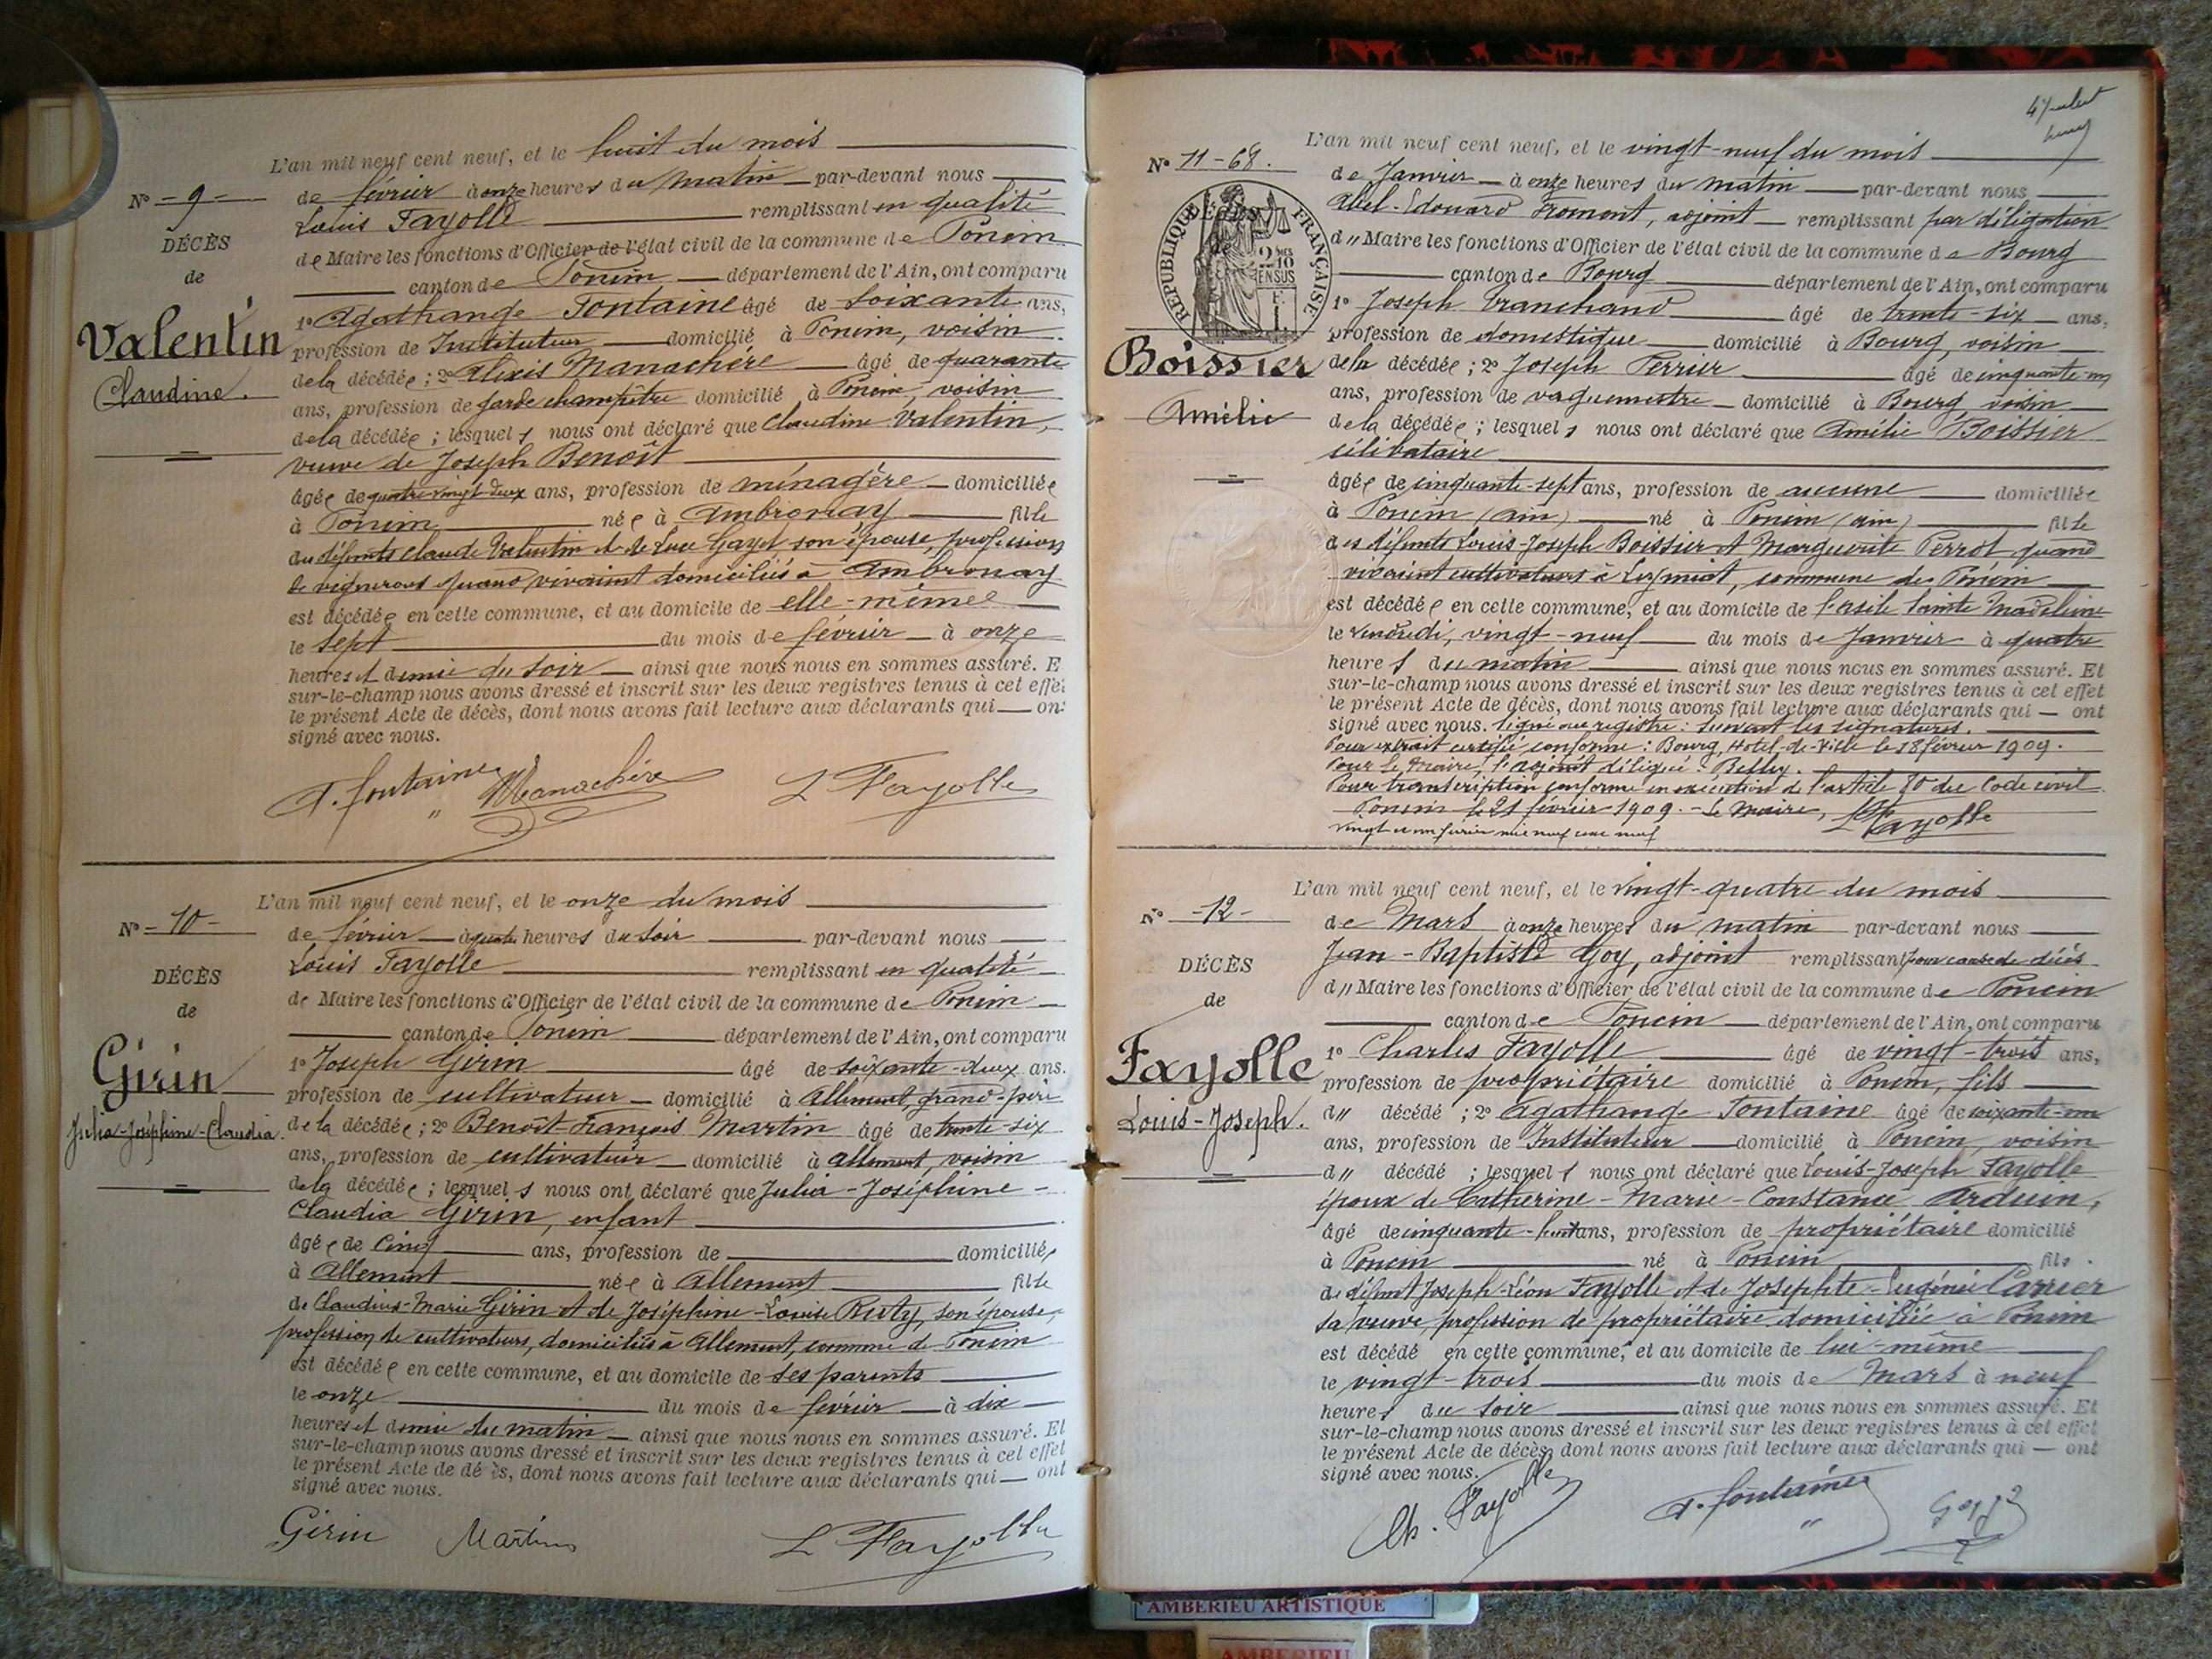 L'an mil neuf cent neuf, et le huit du mois
N° - 9 -
de février à onze heures du matin par-devant nous
Louis Fayolle remplissant en qualité
DÉCÈS
de Maire les fonctions d'Officier de l'état civil de la commune de Poncin
de
canton de Poncin département de l'Ain, ont comparu
Valentin
1° Agathange Fontaine âgé de soixante ans,
profession de Instituteur domicilié à Poncin, voisin
Claudine.
de la décédée ; 2° Alexis Manachère âgé de quarante
ans, profession de garde champêtre domicilié à Poncin, voisin
de la décédée ; lesquels nous ont déclaré que Claudine Valentin,
veuve de Joseph Benoît
âgée de quatre-vingt-deux ans, profession de ménagère domiciliée
à Poncin née à Ambronay fille
des défunts Claude Valentin et de Luce Gayet, son épouse, profession
de vignerons quand vivaient domiciliés à Ambronay
est décédée en cette commune, et au domicile de elle-même
le sept du mois de février à onze
heures et demie du soir ainsi que nous nous en sommes assuré. E
sur-le-champ nous avons dressé et inscrit sur les deux registres tenus à cet effet
le présent Acte de décès, dont nous avons fait lecture aux déclarants qui ont
signé avec nous.
A. Fontaine Manachère L Fayolle
L'an mil neuf cent neuf, et le onze du mois
N° - 10 -
de février à quatre heures du soir par-devant nous
Louis Fayolle remplissant en qualité
DÉCÈS
de Maire les fonctions d'Officier de l'état civil de la commune de Poncin
de
canton de Poncin département de l'Ain, ont comparu
Girin
1° Joseph Girin âgé de soixante-deux ans.
profession de cultivateur domicilié à Allement, grand-père
Julia-Joséphine-Claudia.
de la décédée ; 2° Benoît François Martin âgé de trente-six
ans, profession de cultivateur domicilié à Allement, voisin
de la décédée ; lesquels nous ont déclaré que Julia-Joséphine-
Claudia Girin, enfant
âgée de cinq ans, profession de domiciliée
à Allement née à Allement fille
de Claudius-Marie Girin et de Joséphine-Louise Ruty, son épouse,
profession de cultivateurs, domiciliés à Allement, commune de Poncin
est décédée en cette commune, et au domicile de ses parents
le onze du mois de février à dix
heures et demie du matin ainsi que nous nous en sommes assuré. Et
sur-le-champ nous avons dressé et inscrit sur les deux registres tenus à cet effet
le présent Acte de dé ès, dont nous avons fait lecture aux déclarants qui ont
signé avec nous.
Girin Martin L Fayolle
L'an mil neuf cent neuf, et le vingt-neuf du mois
N° 11-68.
de Janvier à onze heures du matin par-devant nous
Abel-Edouard Fromont, adjoint remplissant par délégation
d" Maire les fonctions d'Officier de l'état civil de la commune de Bourg
canton de Bourg département de l'Ain, ont comparu
RÉPUBLIQUE FRANÇAISE
1° Joseph Tranchand âgé de trente-six ans,
profession de domestique domicilié à Bourg, voisin
Boissier
de la décédée ; 2° Joseph Perrier âgé de cinquante-un
ans, profession de vaguemestre domicilié à Bourg, voisin
Amélie
de la décédée ; lesquels nous ont déclaré que Amélie Boissier
célibataire
âgée de cinquante-sept ans, profession de aucune domiciliée
à Poncin (Ain) né à Poncin (Ain) fille
des défunts Louis-Joseph Boissier et Marguerite Perrot quand
vivaient cultivateurs à Leymiat, commune de Poncin
est décédée en cette commune, et au domicile de l'asile Sainte Madeleine
le vendredi, vingt-neuf du mois de Janvier à quatre
heures du matin ainsi que nous nous en sommes assuré. Et
sur-le-champ nous avons dressé et inscrit sur les deux registres tenus à cet effet
le présent Acte de décès, dont nous avons fait lecture aux déclarants qui ont
signé avec nous. Signé au registre : Suivent les signatures.
Pour extrait certifié conforme : Bourg, Hôtel-de-Ville le 18 février 1909.
Pour le Maire, l'adjoint délégué : Belley.
Pour transcription conforme en exécution de l'article 80 du Code civil.
Poncin le 21 février 1909. - Le Maire, L Fayolle
vingt et un février mil neuf cent neuf
L'an mil neuf cent neuf, et le vingt-quatre du mois
N° -12-
de Mars à onze heures du matin par-devant nous
Jean-Baptiste Goy, adjoint remplissant pour cause de décès
DÉCÈS
d" Maire les fonctions d'Officier de l'état civil de la commune de Poncin
de
canton de Poncin département de l'Ain, ont comparu
Fayolle
1° Charles Fayolle âgé de vingt-trois ans,
profession de propriétaire domicilié à Poncin, fils
Louis-Joseph.
d" décédé ; 2° Agathange Fontaine âgé de soixante-un
ans, profession de Instituteur domicilié à Poncin, voisin
d" décédé ; lesquels nous ont déclaré que Louis-Joseph Fayolle
époux de Catherine-Marie-Constance Arduin,
âgé de cinquante-huit ans, profession de propriétaire domicilié
à Poncin né à Poncin fils
de défunt Joseph-Léon Fayolle et de Josephte-Eugénie Carrier
sa veuve, profession de propriétaire domiciliée à Poncin
est décédé en cette commune, et au domicile de lui-même
le vingt-trois du mois de Mars à neuf
heures du soir ainsi que nous nous en sommes assuré. Et
sur-le-champ nous avons dressé et inscrit sur les deux registres tenus à cet effet
le présent Acte de décès, dont nous avons fait lecture aux déclarants qui ont
signé avec nous.
Ch. Fayolle A. Fontaine Goy
AMBERIEU ARTISTIQUE
AMBERIEU